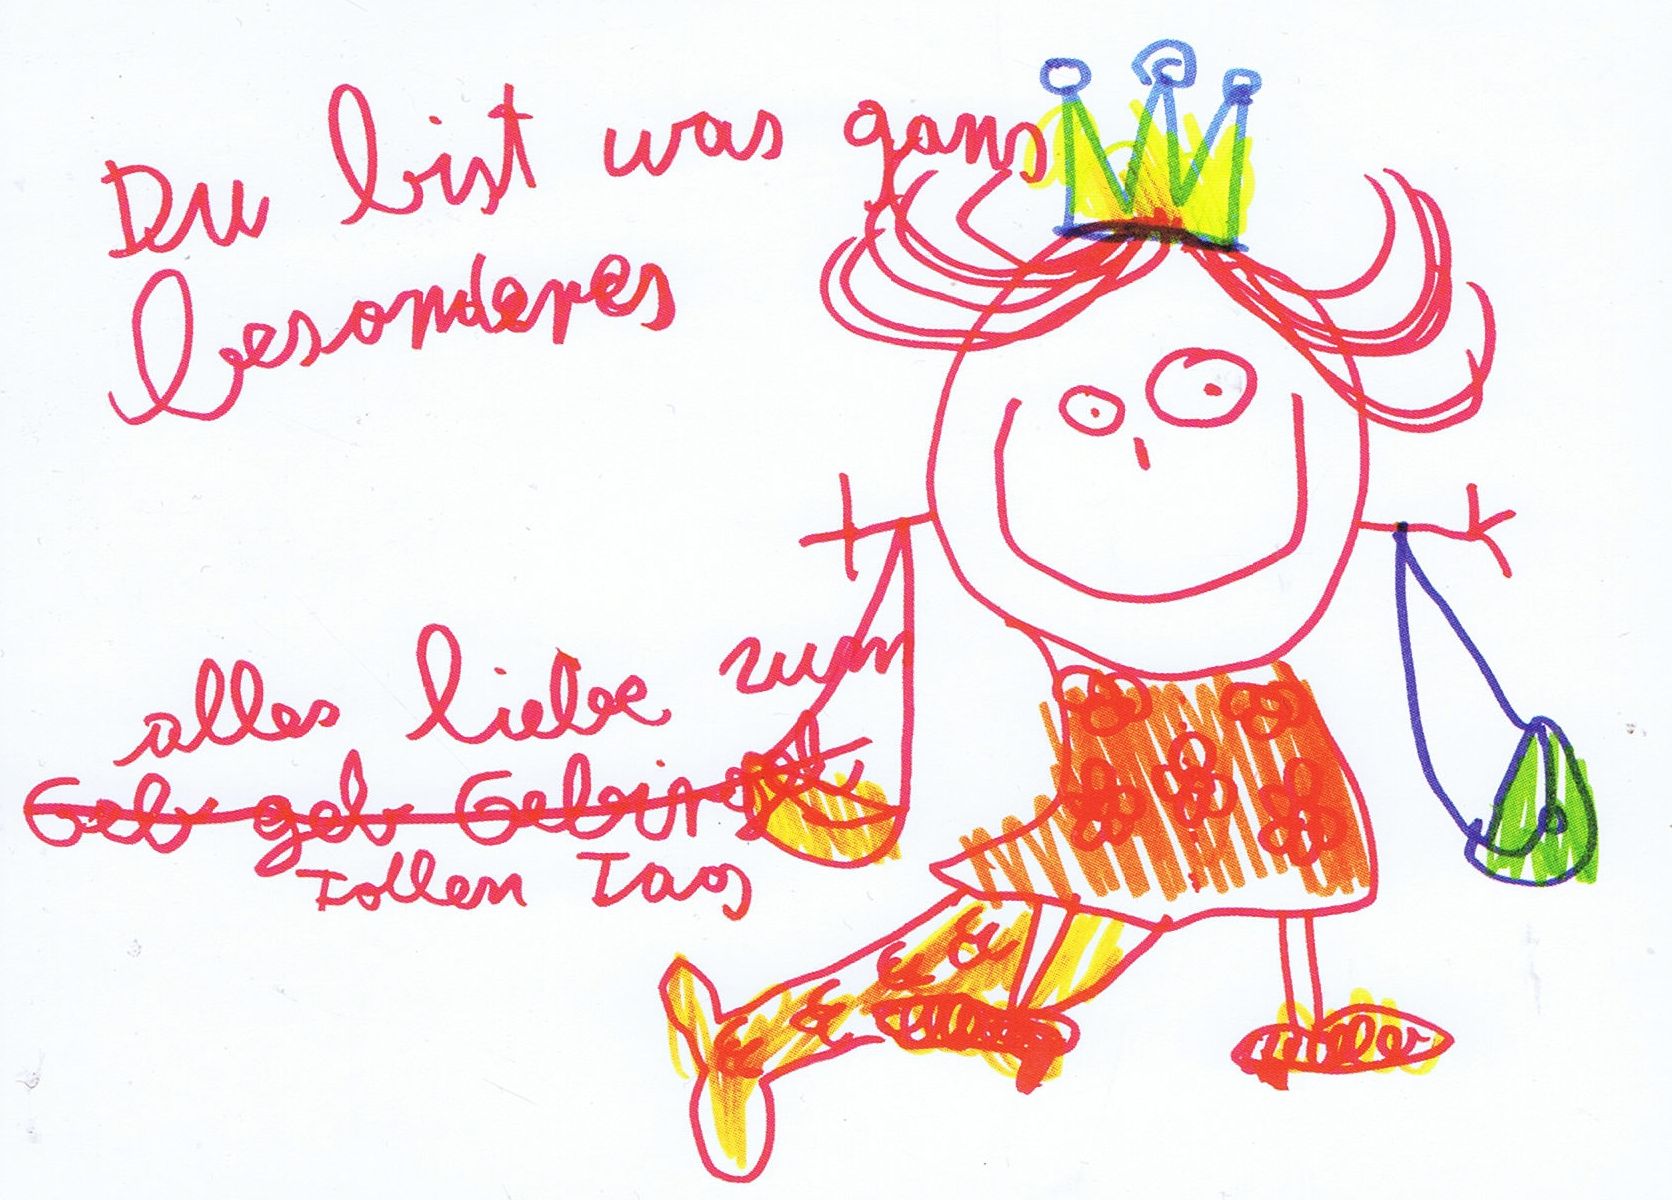 Du bist was gans
besonderes
alles liebe zum
Geb geb
Tollen Tag